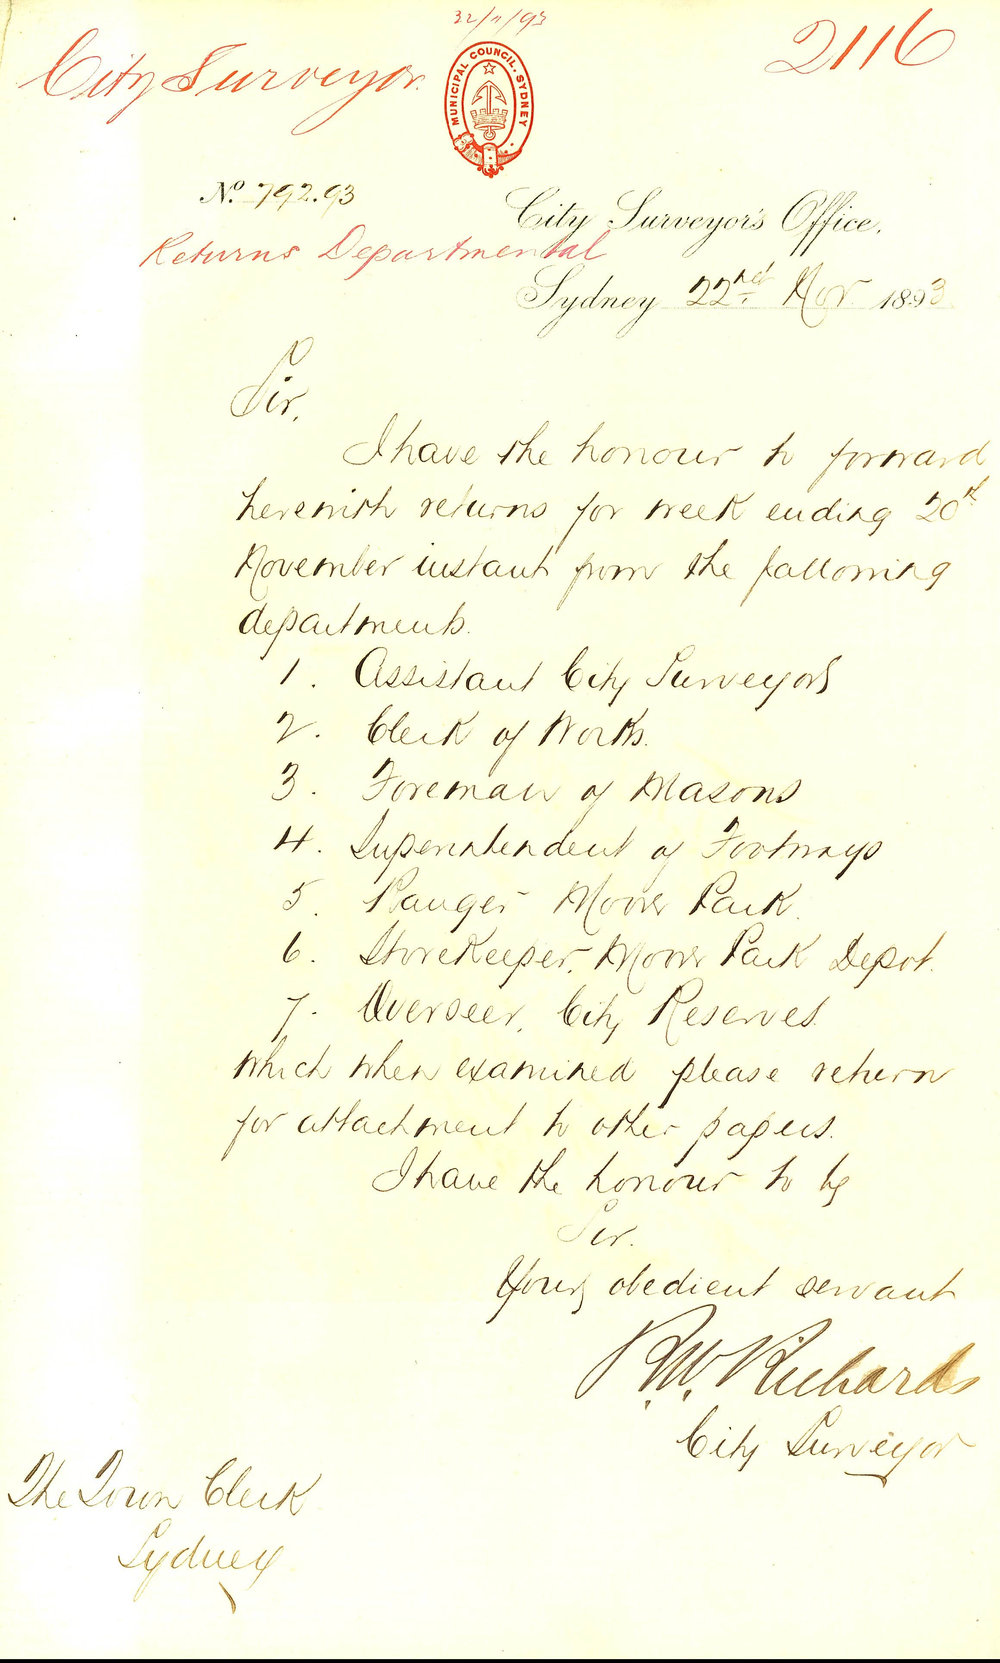 22/11/93
2116
City Surveyor.
MUNICIPAL COUNCIL. SYDNEY
No. 792.93
City Surveyor's Office,
Returns Departmental
Sydney 22nd Nov 1893
Sir,
I have the honour to forward
herewith returns for week ending 20th
November instant from the following
departments.
1. Assistant City Surveyors
2. Clerk of Works.
3. Foreman of Masons
4. Superintendent of Footways
5. Ranger Moore Park.
6. Storekeeper, Moore Park Depot.
7. Overseer, City Reserves.
which when examined please return
for attachment to other papers.
I have the honour to be
Sir.
Your obedient servant
R.W. Richards
City Surveyor
The Town Clerk
Sydney